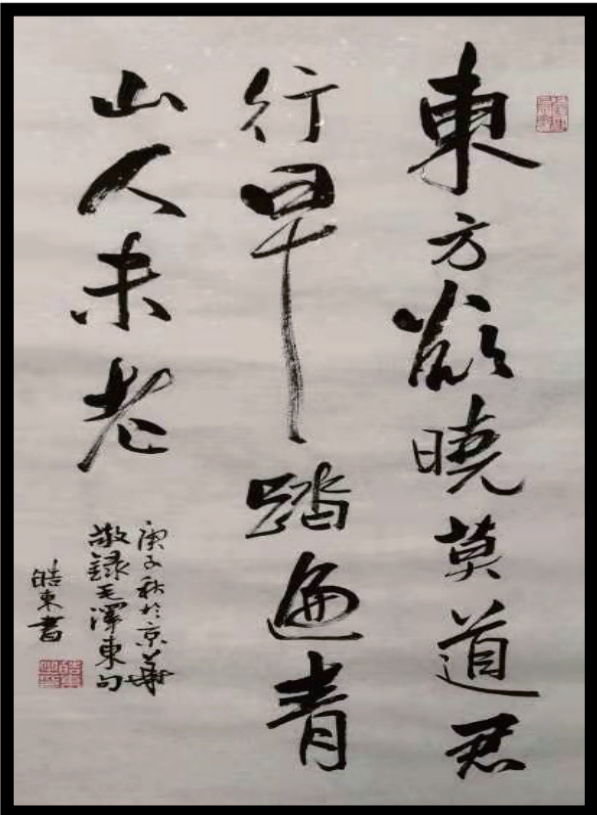 東方欲曉莫道君
行早踏遍青
山人未老
庚子秋於京華
敬錄毛澤東句
皓東書